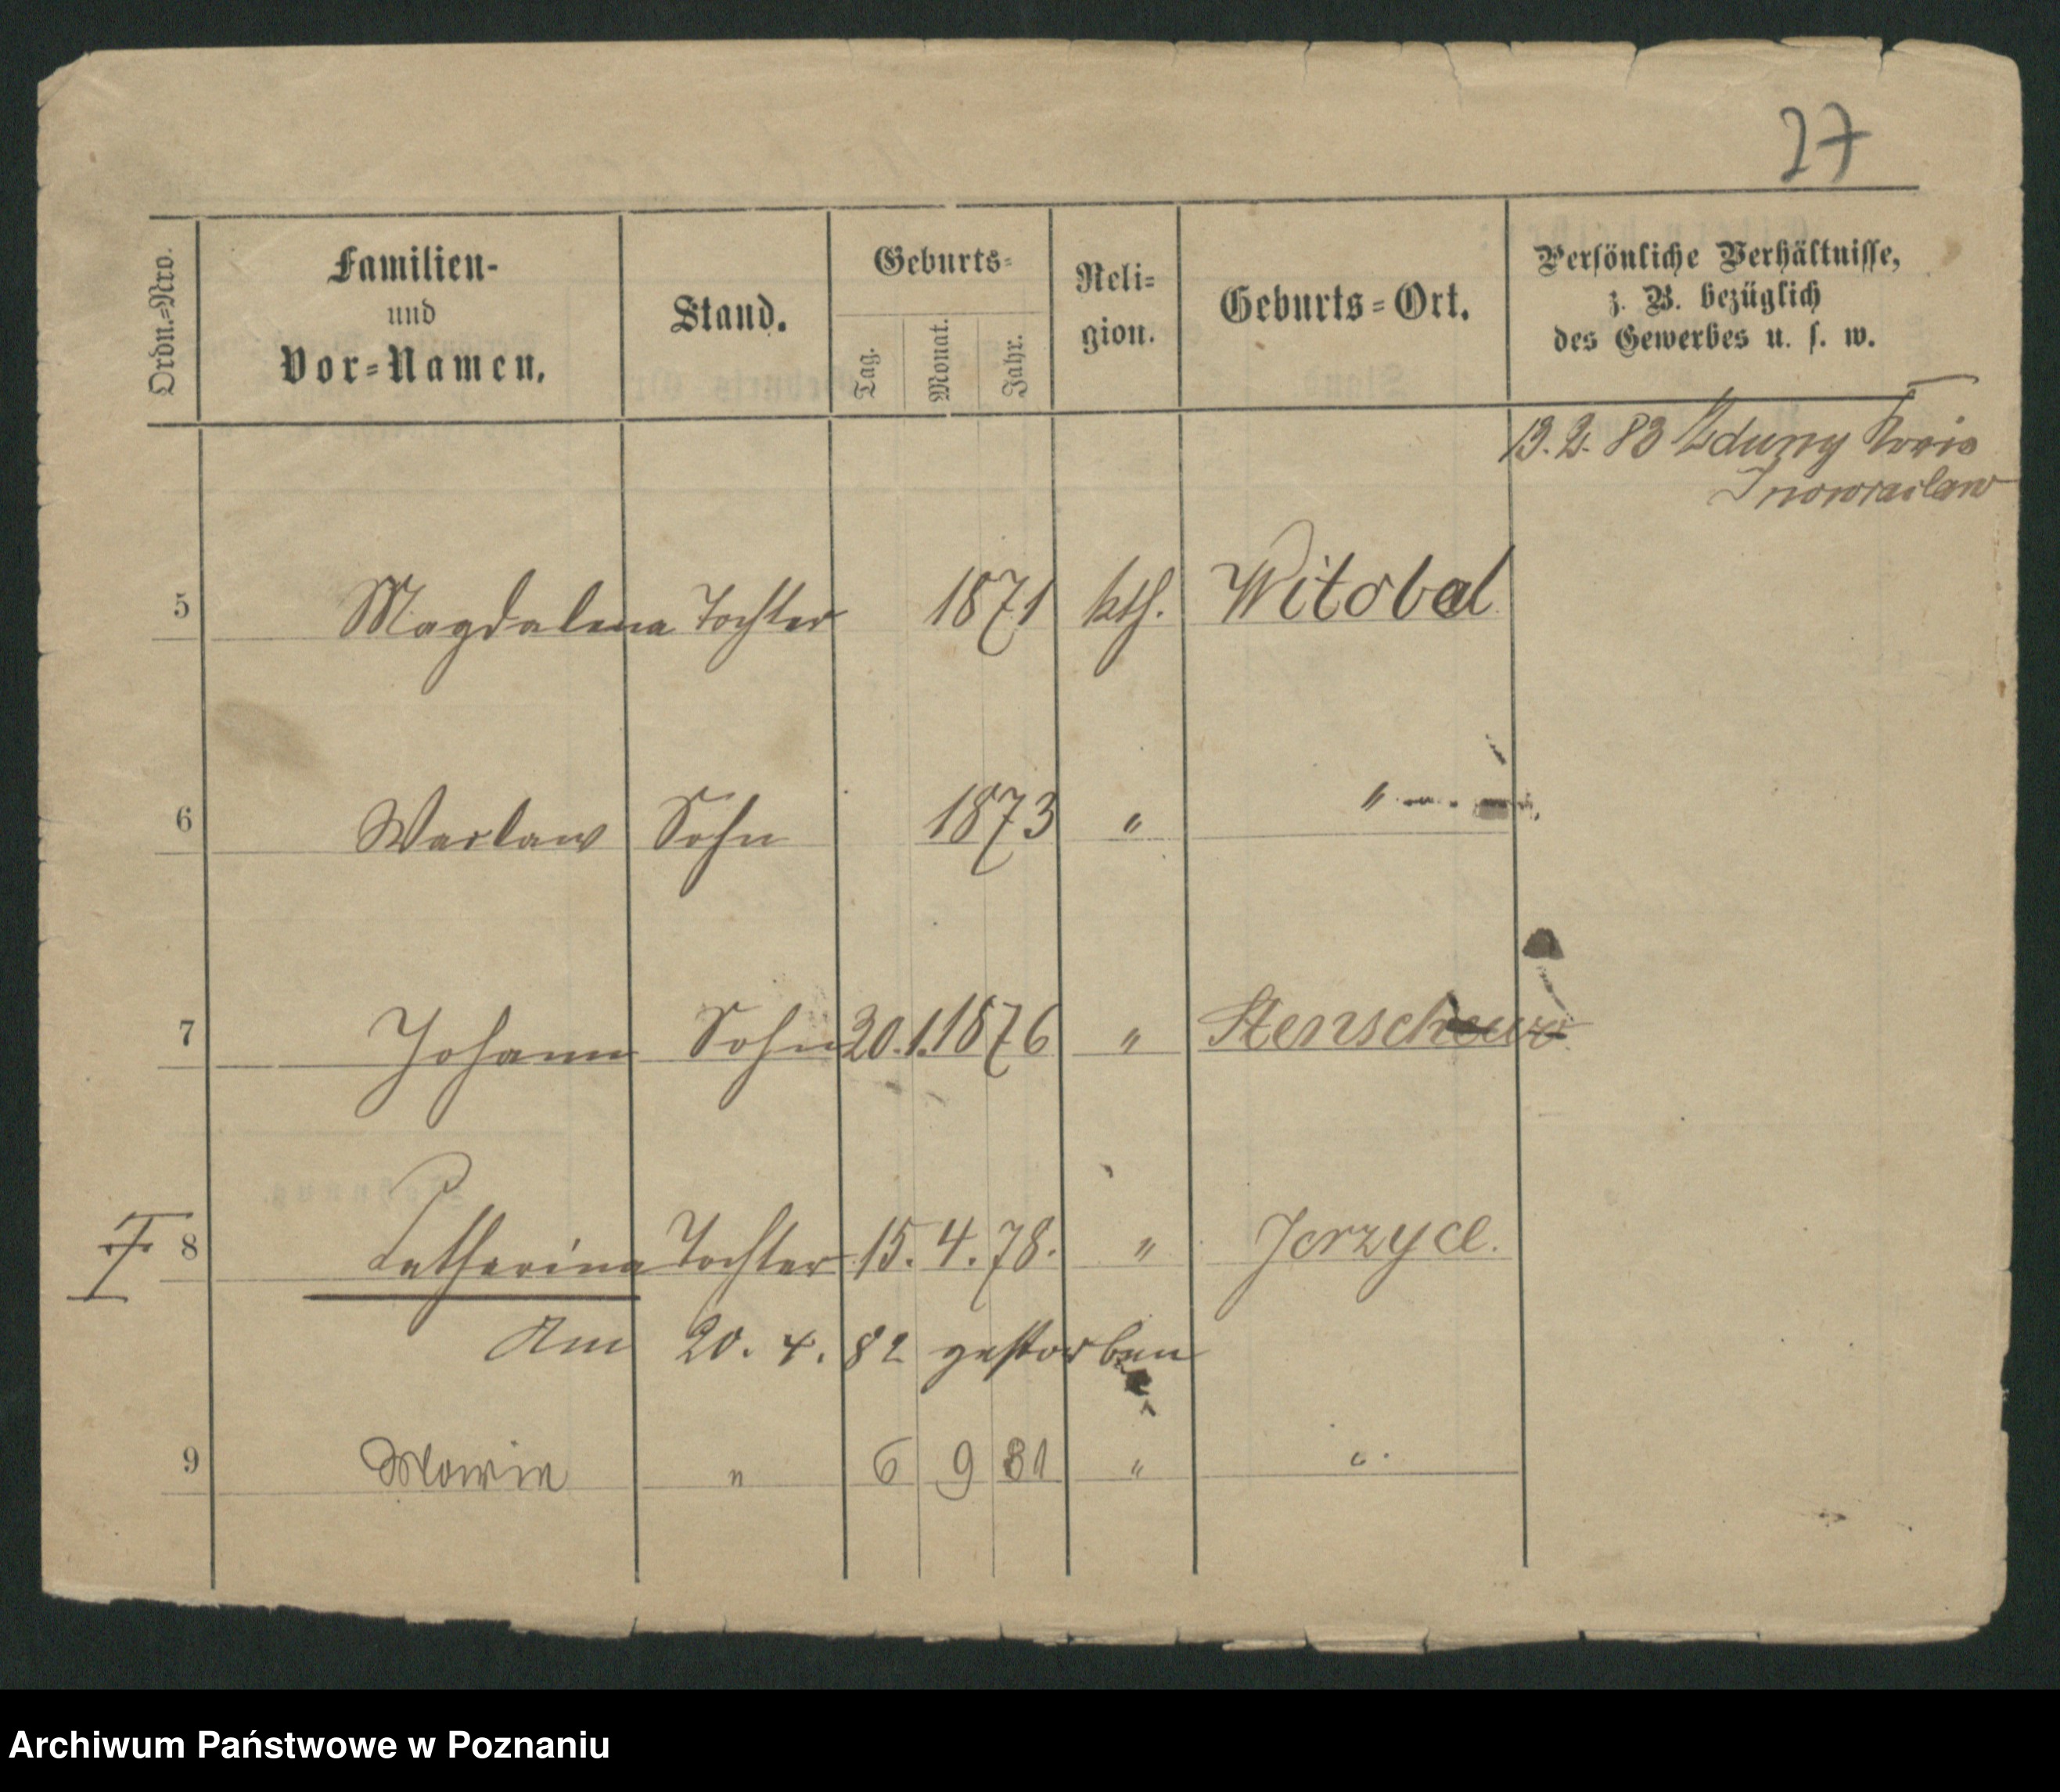 27
Ordn.=Nro.
Familien-
und
Vor=Namen.
Stand.
Geburts=
Tag.
Monat.
Jahr.
Reli=
gion.
Geburts=Ort.
Persönliche Verhältnisse,
z. B. bezüglich
des Gewerbes u. s. w.
13. 2. 83 Zduny Kreis
Inowraclaw
5 Magdalena Tochter 1871 kth. Witobel
6 Waclaw Sohn 1873 " "
7 Johann Sohn 30. 1. 1876 " Stenschewo
8 Catharina Tochter 15. 4. 78. " Jerzyce.
Am 20. 4. 82 gestorben
9 Marie " 6 9 81 " "
Archiwum Państwowe w Poznaniu